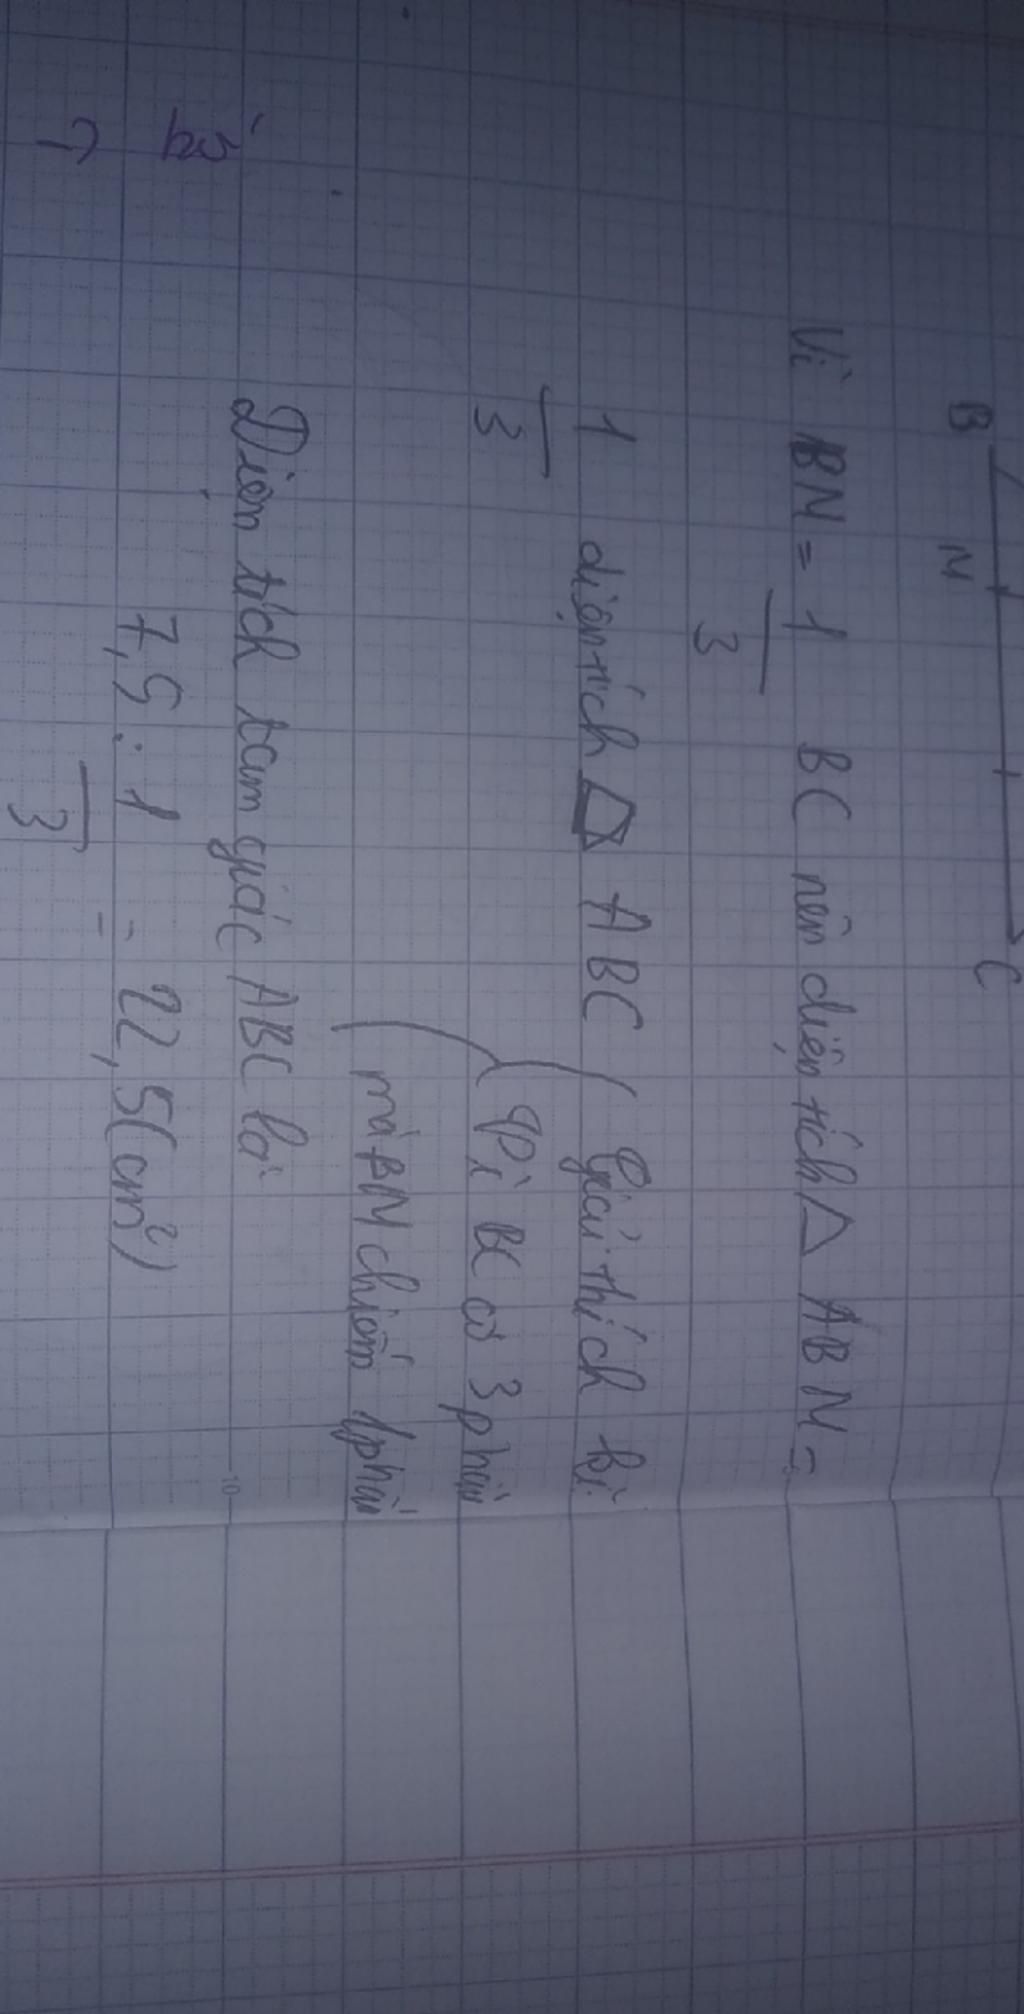 B N C
Vì BN = 1/3 BC nên diện tích △ ABN =
1/3 diện tích △ ABC ( Giải thích hì
Vì BC có 3 phần
mà BN chiếm 1 phần
Diện tích tam giác ABC là:
7,5 : 1/3 = 22,5 (cm²)